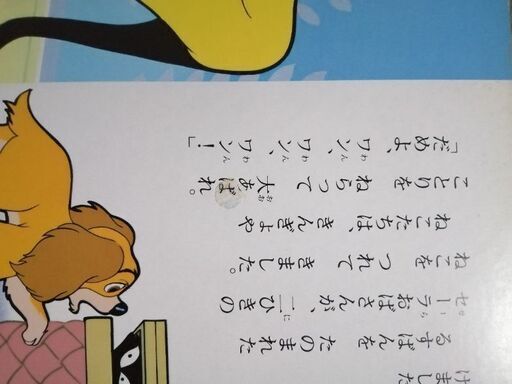 けました
るすばんを たのまれた
セーラおばさんが、二ひきの
ねこを つれて きました。
ねこたちは、きんぎょや
ことりを ねらって 大あばれ。
「だめよ、ワン、ワン、ワン！」